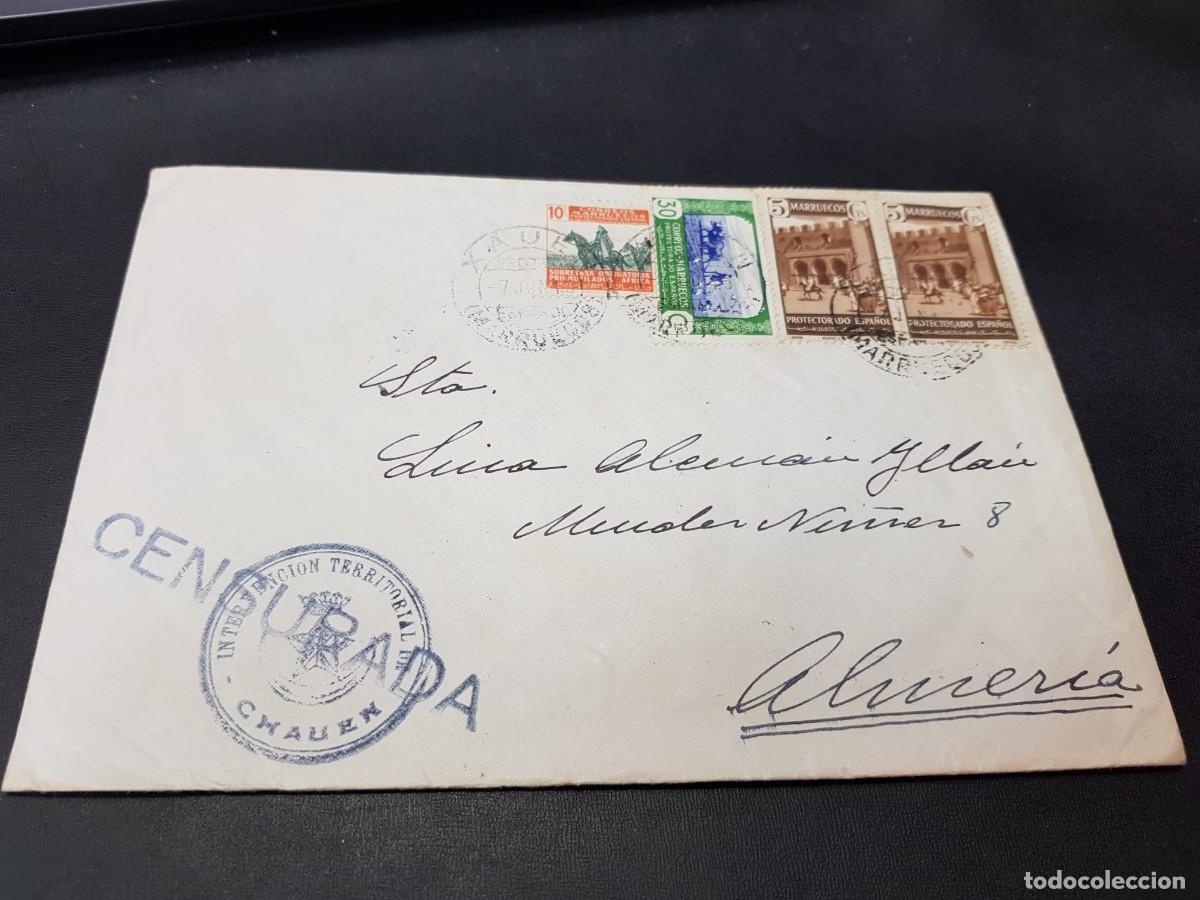 10
CORREOS
MARRUECOS
SOBRETASA OBLIGATORIA
PRO-MUTILADOS AFRICA
30
CORREOS-MARRUECOS
PROTECTORADO ESPAÑOL
Cs
5 MARRUECOS CTS
PROTECTORADO ESPAÑOL
5 MARRUECOS CTS
PROTECTORADO ESPAÑOL
XAUEN
7 JUN
MARRUECOS
MARRUECOS
Sta.
Lina Alemán Yllán
Mendez Nuñez 8
Almería
CENSURADA
INTERVENCION TERRITORIAL DE
CHAUEN
todocoleccion